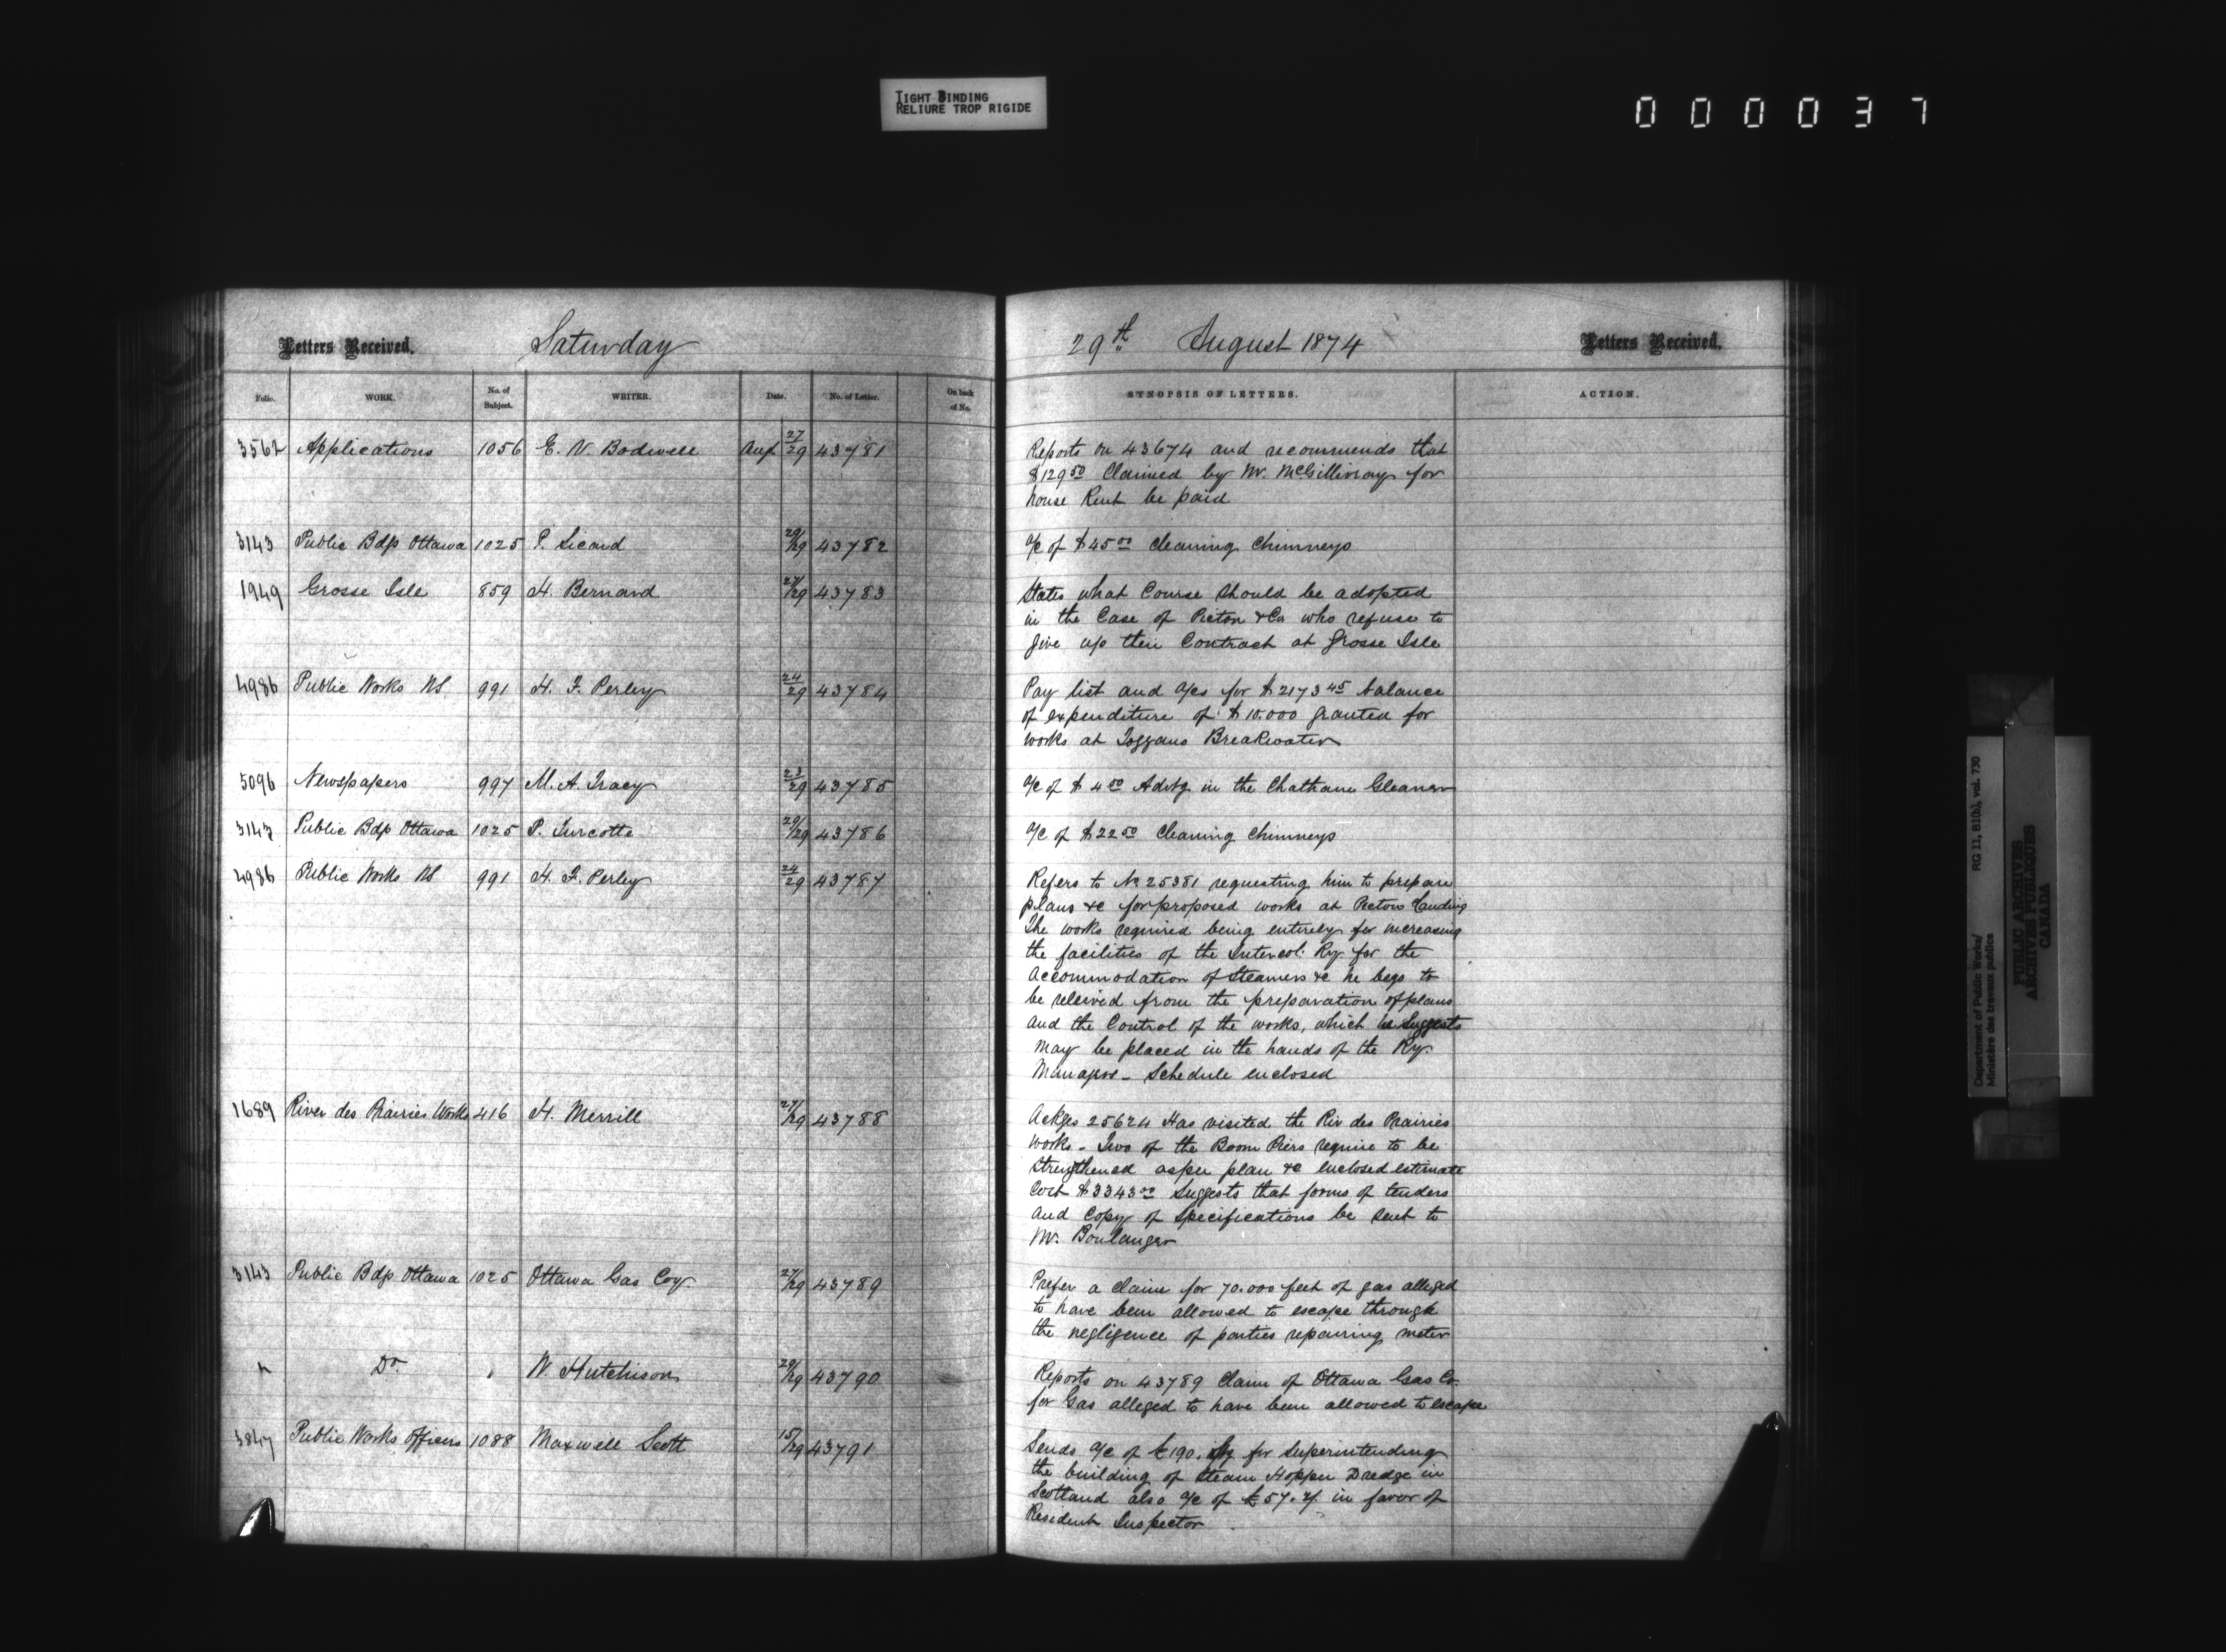 TIGHT BINDING
RELIURE TROP RIGIDE
000037
Letters Received. Saturday
29th August 1874 Letters Received.
Folio. WORK. No. of Subject. WRITER. Date. No. of Letter. On back of No.
SYNOPSIS OF LETTERS. ACTION.
3562 Applications 1056 E. V. Bodwell Aug 27/29 43781
Reports on 43674 and recommends that
$129 50 Claimed by Mr. McGillivray for
house Rent be paid
3143 Public Bdgs Ottawa 1025 P. Sicard 29/29 43782
a/c of $45 00 cleaning chimneys
1949 Grosse Isle 859 H. Bernard 27/29 43783
States what Course should be adopted
in the Case of Picton & Co who refuse to
give up their Contract at Grosse Isle
4986 Public Works NS. 991 H. F. Perley 24/29 43784
Pay list and a/cs for $2173 45 balance
of expenditure of $10.000 granted for
works at Breakwater
5096 Newspapers 997 M. A. Tracy 23/29 43785
a/c of $4 50 Advtg. in the Chatham Gleaner
3143 Public Bdgs Ottawa 1025 P. Turcotte 29/29 43786
a/c of $22 50 cleaning chimneys
4986 Public Works NS 991 H. F. Perley 24/29 43787
Refers to No 25381 requesting him to prepare
plans &c for proposed works at Pictou Landing
The works required being entirely for increasing
the facilities of the Intercol. Ry. for the
accommodation of Steamers &c he begs to
be relieved from the preparation of plans
and the Control of the works, which he suggests
may be placed in the hands of the Ry.
Manager - Schedule enclosed
1689 River des Prairies Works 416 H. Merrill 27/29 43788
Ackges 25624 Has visited the Riv des Prairies
works - Two of the Boom Piers require to be
strengthened as per plan &c enclosed estimate
Cost $3343 00 Suggests that forms of tenders
and Copy of Specifications be sent to
Mr. Boulanger
3143 Public Bdgs Ottawa 1025 Ottawa Gas Coy. 27/29 43789
Prefer a claim for 70.000 feet of gas alleged
to have been allowed to escape through
the negligence of parties repairing meter
" Do. " W. Hutchison 29/29 43790
Reports on 43789 Claim of Ottawa Gas Co.
for Gas alleged to have been allowed to escape
3847 Public Works Officers 1088 Maxwell Scott 15/29 43791
Sends a/c of £190. Stg for superintending
the building of Steam Hopper Dredge in
Scotland also a/c of £57. in favor of
Resident Inspector
Department of Public Works/ RG 11, B1(a), vol. 730
Ministère des travaux publics
PUBLIC ARCHIVES
ARCHIVES PUBLIQUES
CANADA